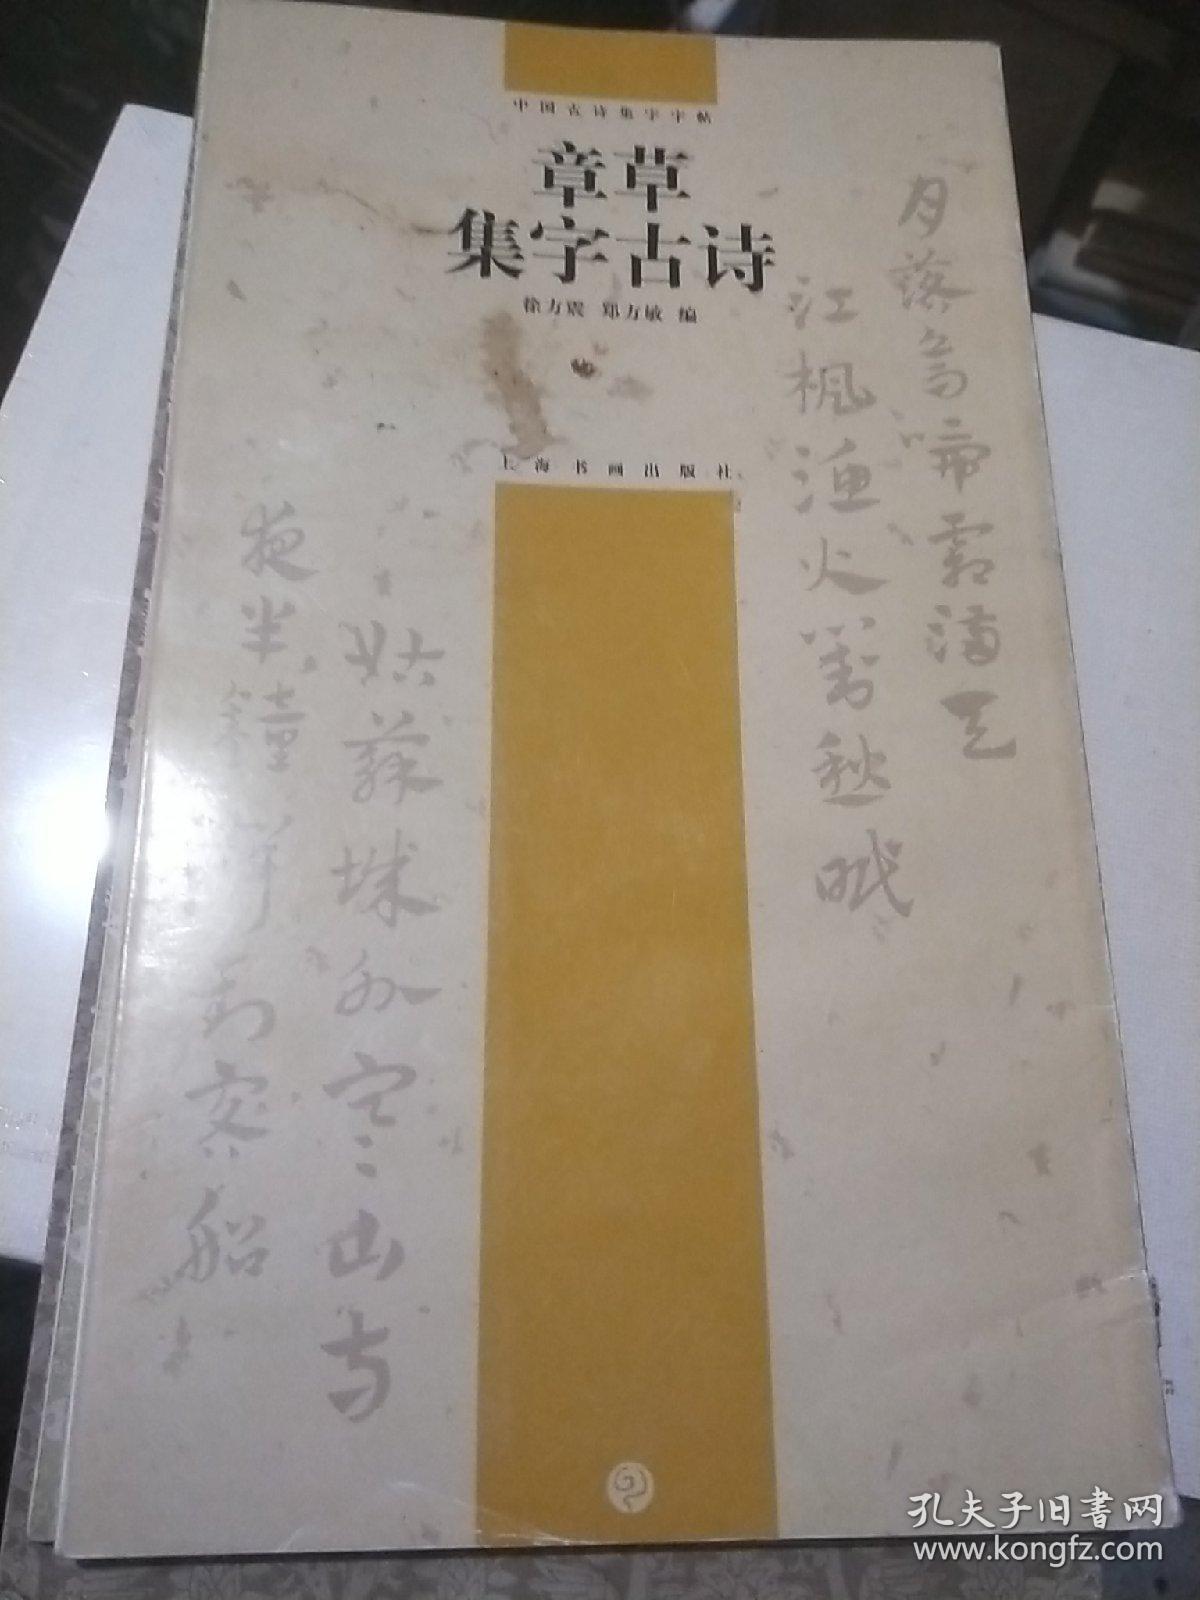 中国古诗集字字帖
章草
集字古诗
徐方震 郑方敏 编
上海书画出版社
月落乌啼霜满天
江枫渔火对愁眠
姑苏城外寒山寺
夜半钟声到客船
孔夫子旧书网
www.kongfz.com